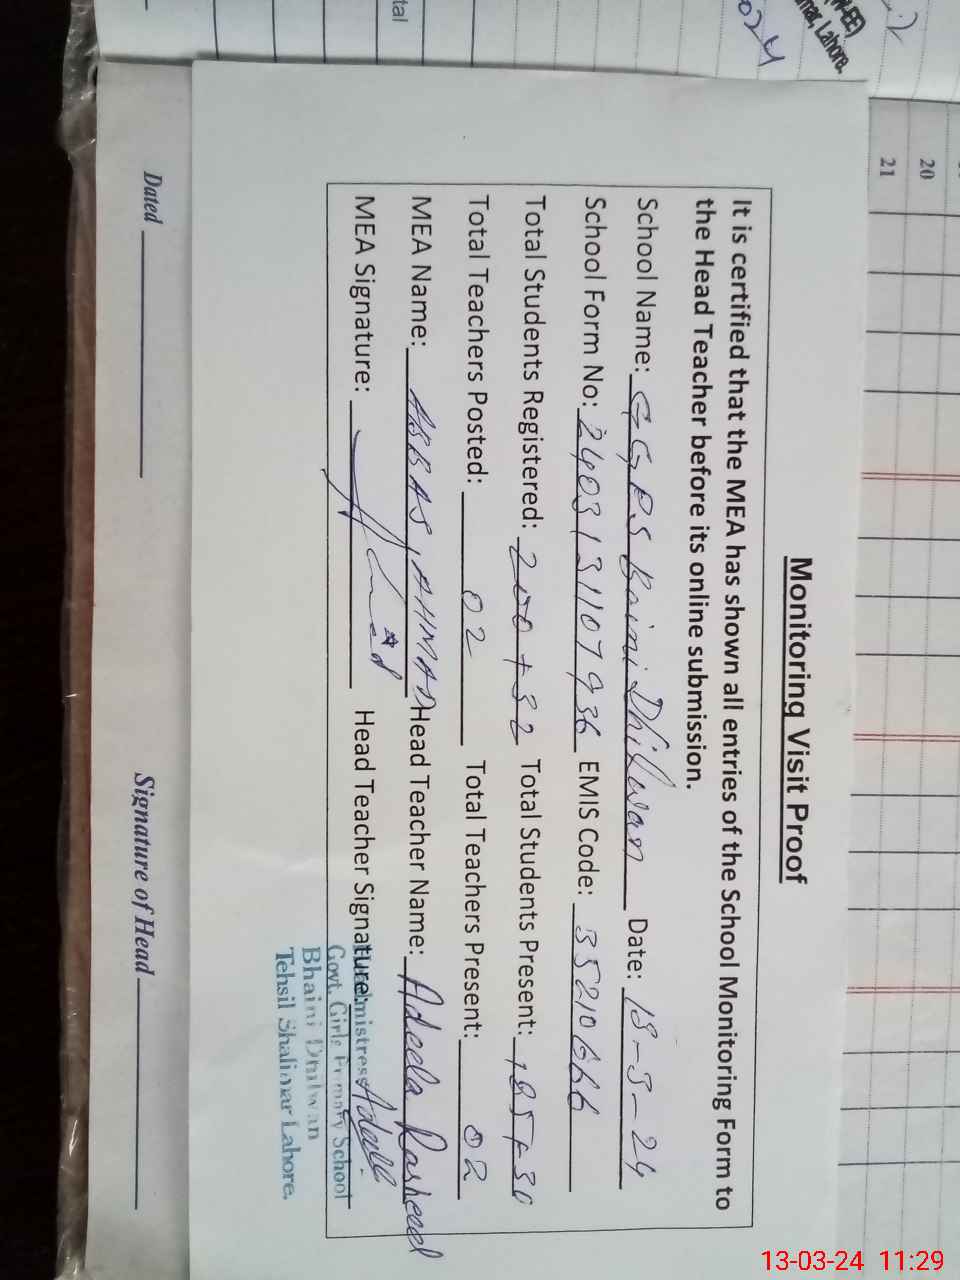 Monitoring Visit Proof
It is certified that the MEA has shown all entries of the School Monitoring Form to
the Head Teacher before its online submission.
School Name: GGPS Baini Dhilwan Date: 13-3-24
School Form No: 2403131107936 EMIS Code: 35210666
Total Students Registered: 200+32 Total Students Present: 185+30
Total Teachers Posted: 02 Total Teachers Present: 02
MEA Name: ABBAS AHMAD Head Teacher Name: Adeela Rasheed
MEA Signature: Head Teacher Signature: Adeela
Headmistress
Govt. Girls Primary School
Bhaini Dhilwan
Tehsil Shalimar Lahore.
Dated Signature of Head
20
21
Lahore.
2024
tal
13-03-24 11:29